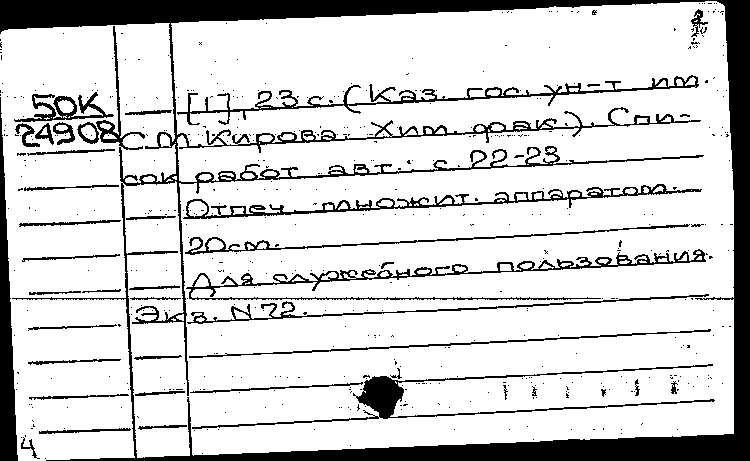 2
50К
[1], 23 с. (Каз. гос. ун-т им.
24908
С.М. Кирова. Хим. фак.). Спи-
сок работ авт.: с. 22-23.
Отпеч. множит. аппаратом.
20см.
Для служебного пользования.
Экз. N 72.
4